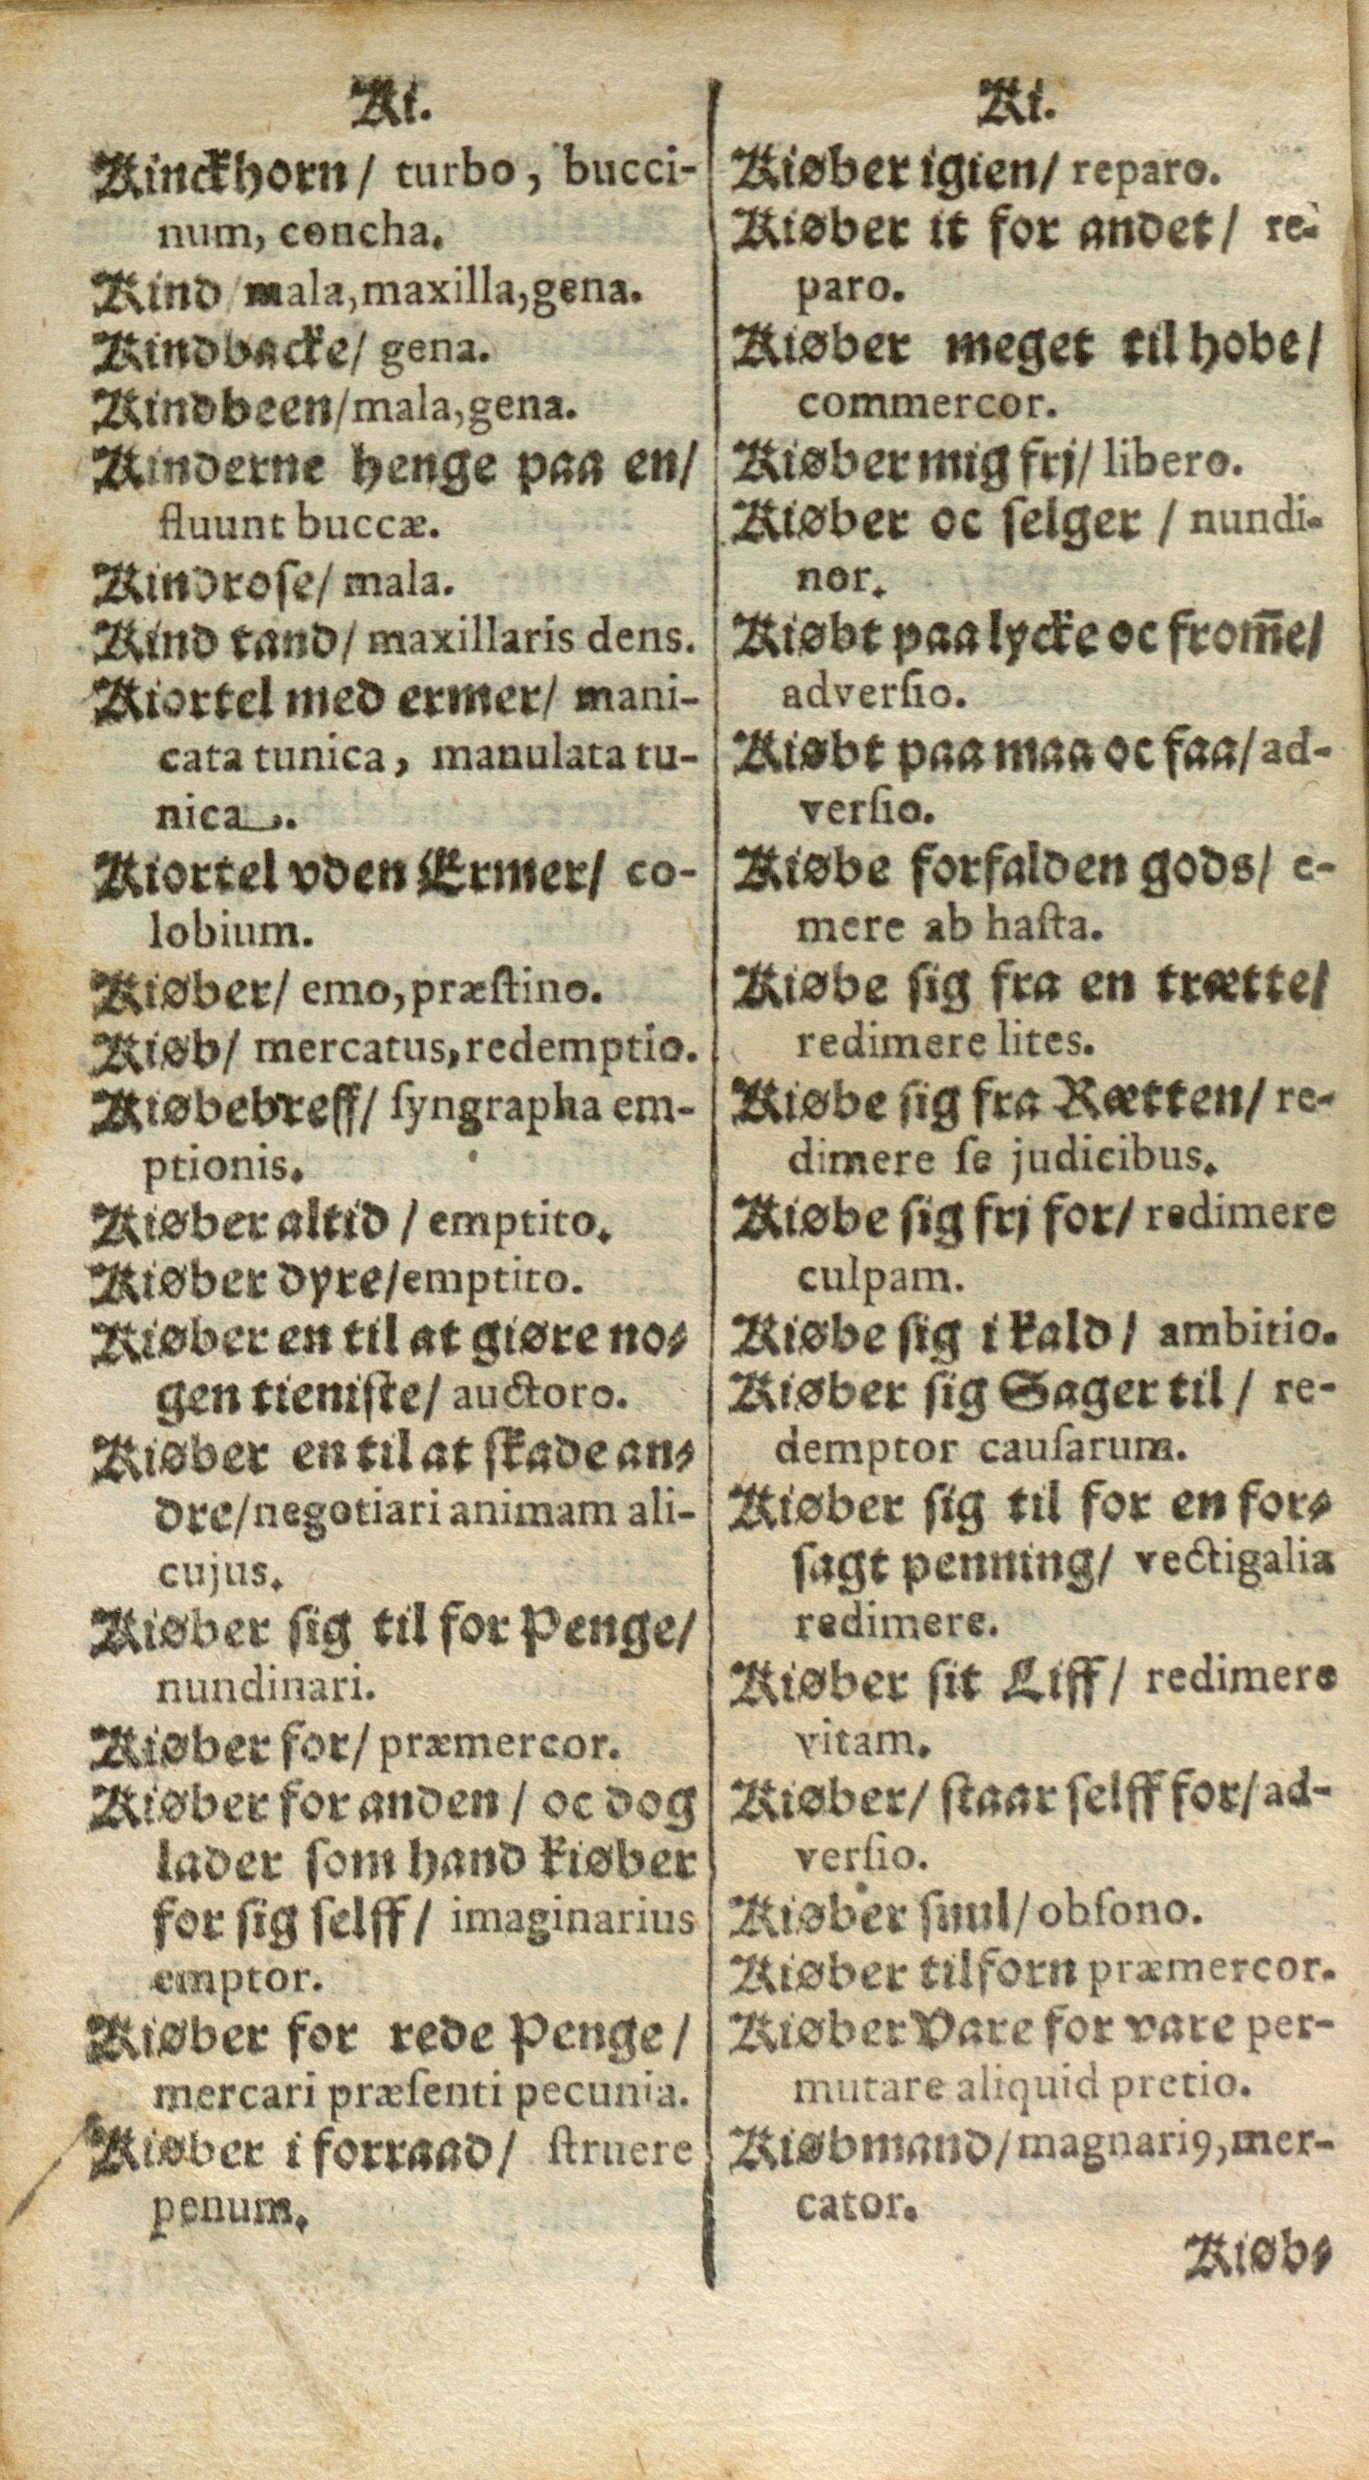 Ki.
Kinckhorn/ turbo, bucci-
num, concha.
Kind/mala,maxilla,gena.
Kindbacke/ gena.
Kindbeen/mala,gena.
Kinderne henge paa en/
fluunt buccæ.
Kindroſe/ mala.
Kind tand/ maxillaris dens.
Kiortel med ermer/ mani-
cata tunica, manulata tu-
nica.
Kiortel vden Ermer/ co-
lobium.
Kiøber/ emo,præſtino.
Kiøb/ mercatus,redemptio.
Kiøbebreff/ ſyngrapha em-
ptionis.
Kiøber altid / emptito.
Kiøber dyre/emptito.
Kiøber en til at giøre no⸗
gen tieniſte/ auctoro.
Kiøber en til at ſkade an⸗
dre/negotiari animam ali-
cujus.
Kiøber ſig til for Penge/
nundinari.
Kiøber for/ præmercor.
Kiøber for anden / oc dog
lader ſom hand kiøber
for ſig ſelff/ imaginarius
emptor.
Kiøber for rede Penge/
mercari præſenti pecunia.
Kiøber i forraad/ ſtruere
penum.
Ki.
Kiøber igien/ reparo.
Kiøber it for andet/ re-
paro.
Kiøber meget til hobe/
commercor.
Kiøber mig frj/ libero.
Kiøber oc ſelger / nundi-
nor.
Kiøbt paa lycke oc from̅e/
adverſio.
Kiøbt paa maa oc faa/ ad-
verſio.
Kiøbe forfalden gods/ e-
mere ab haſta.
Kiøbe ſig fra en trætte/
redimere lites.
Kiøbe ſig fra Rætten/ re-
dimere ſe judicibus.
Kiøbe ſig frj for/ redimere
culpam.
Kiøbe ſig i kald/ ambitio.
Kiøber ſig Sager til/ re-
demptor cauſarum.
Kiøber ſig til for en for⸗
ſagt penning/ vectigalia
redimere.
Kiøber ſit Liff/ redimere
vitam.
Kiøber/ ſtaar ſelff for/ ad-
verſio.
Kiøber ſuul/ obſono.
Kiøber tilforn præmercor.
Kiøber Vare for vare per-
mutare aliquid pretio.
Kiøbmand/magnariꝰ,mer-
cator.
Kiøb⸗